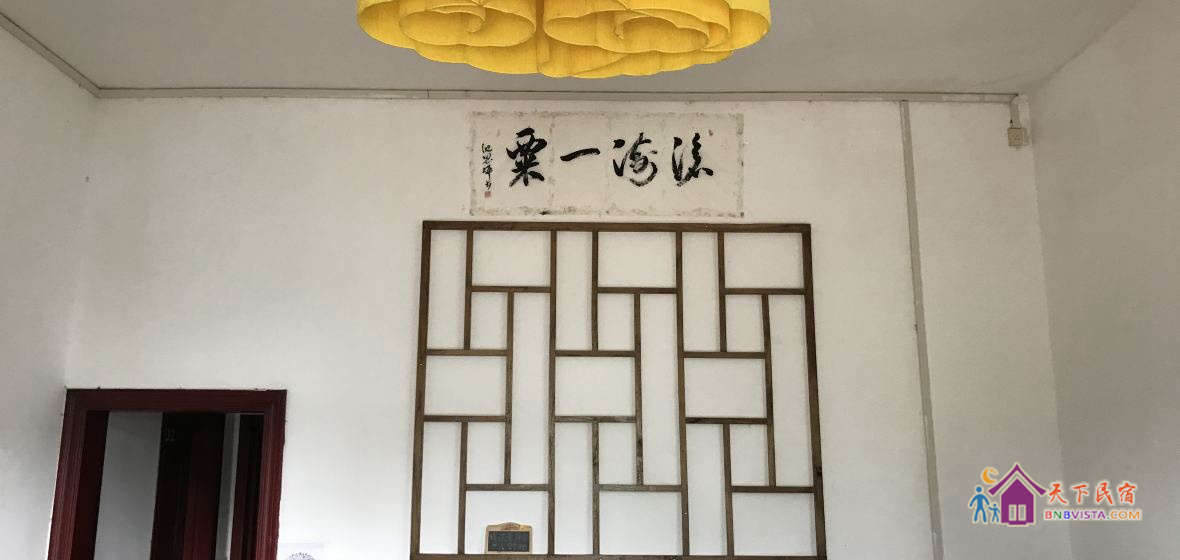 滄海一粟
天下民宿
BNBVISTA.COM